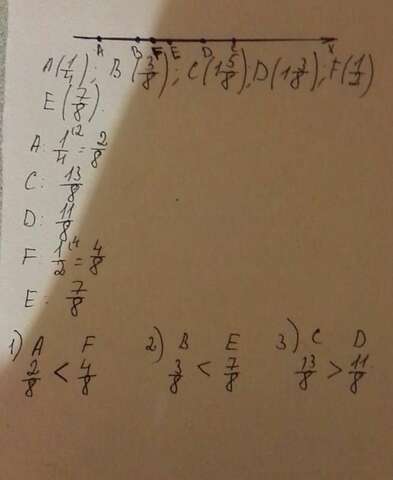 A B F E D C x
A(1/4); B(3/8); C(1 5/8), D(1 3/8); F(1/2)
E(7/8).
A: 1/4 ^(2 = 2/8
C: 13/8
D: 11/8
F: 1/2 ^(4 = 4/8
E: 7/8
1) A F 2) B E 3) C D
2/8 < 4/8 3/8 < 7/8 13/8 > 11/8